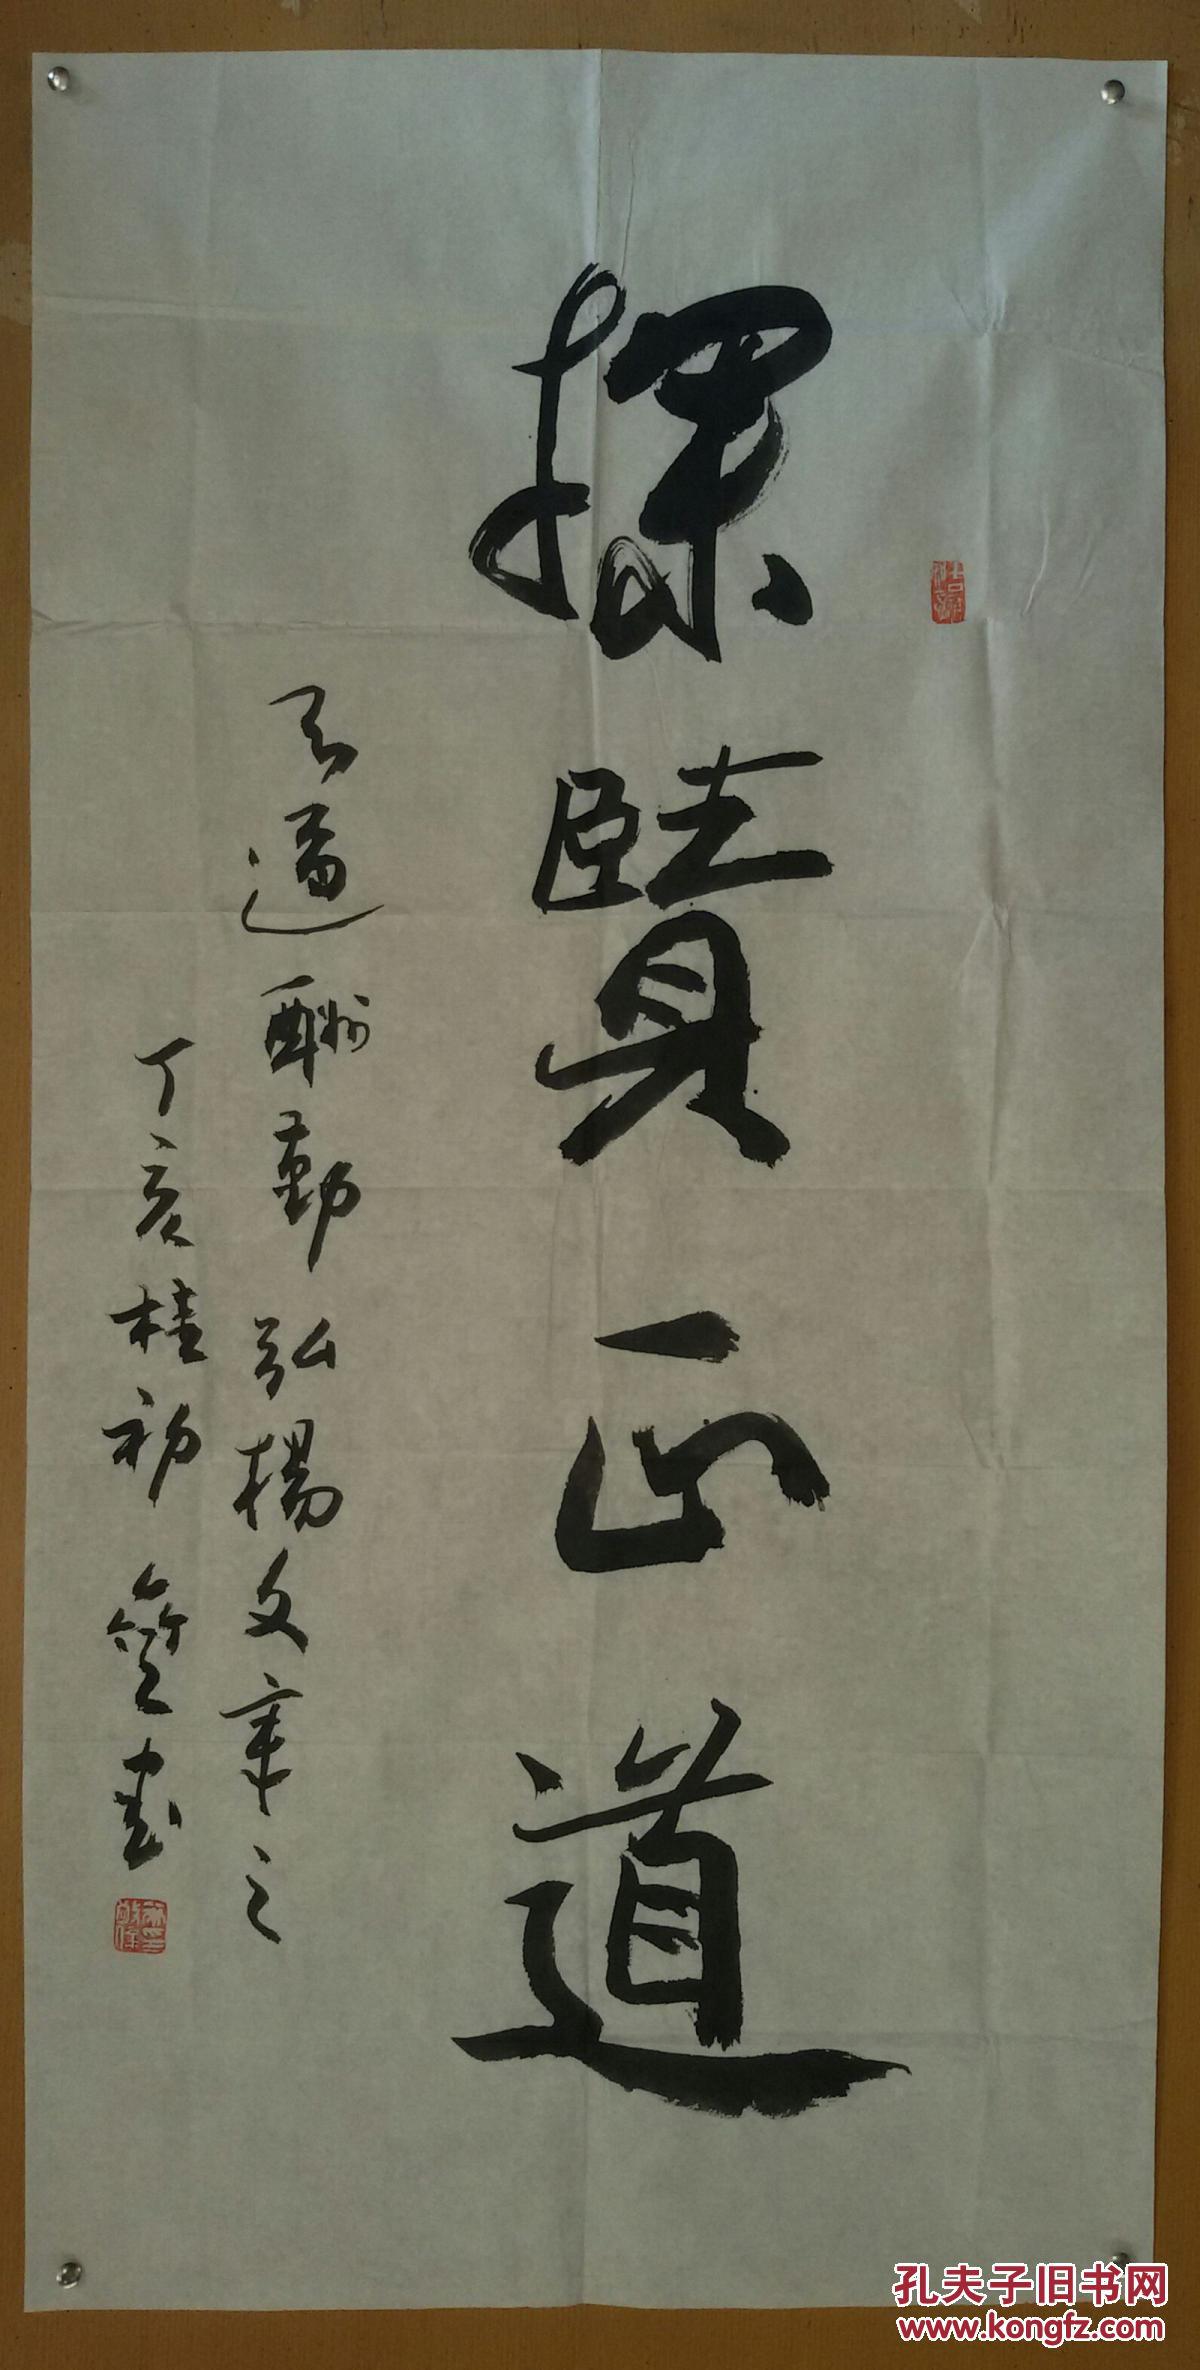 探賾正道
天道酬勤弘揚文章之
丁亥桂初書
孔夫子旧书网
www.kongfz.com